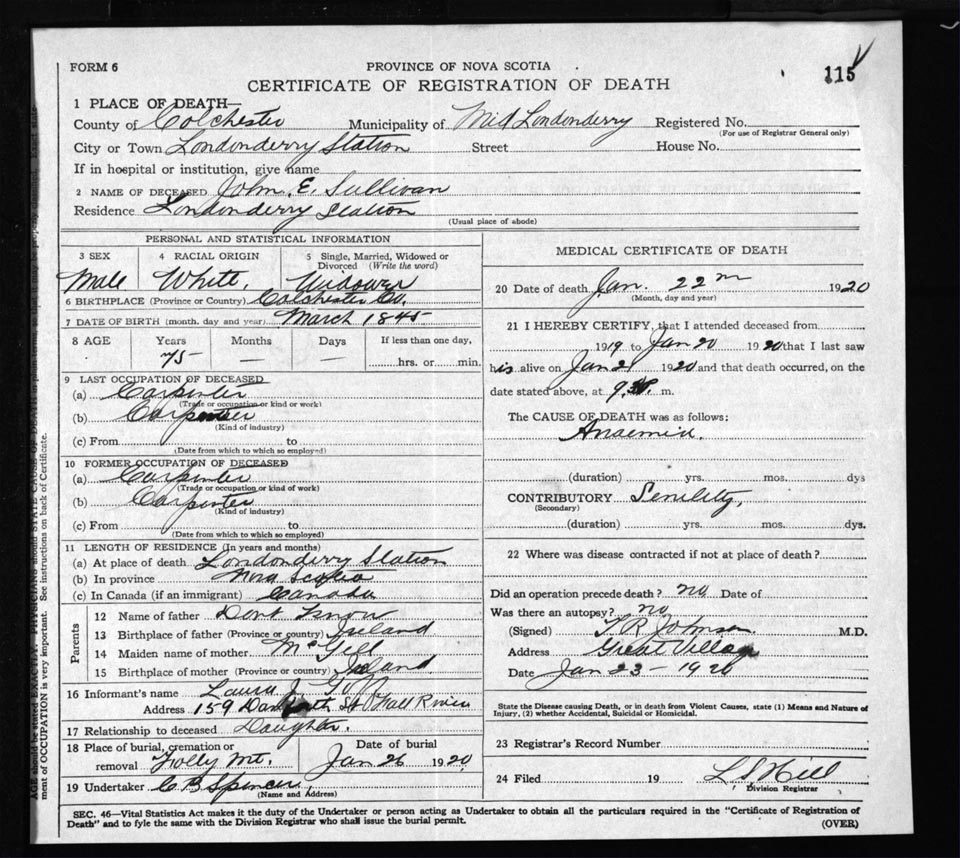 FORM 6
PROVINCE OF NOVA SCOTIA
115
CERTIFICATE OF REGISTRATION OF DEATH
1 PLACE OF DEATH—
County of Colchester Municipality of Mid Londonderry Registered No.
(For use of Registrar General only)
City or Town Londonderry Station Street House No.
If in hospital or institution, give name
2 NAME OF DECEASED John E. Sullivan
Residence Londonderry Station
(Usual place of abode)
PERSONAL AND STATISTICAL INFORMATION
3 SEX 4 RACIAL ORIGIN 5 Single, Married, Widowed or Divorced (Write the word)
Male White. Widower
6 BIRTHPLACE (Province or Country) Colchester Co.
7 DATE OF BIRTH (month. day and year) March 1845
8 AGE Years Months Days If less than one day,
75 — — hrs. or min.
9 LAST OCCUPATION OF DECEASED
(a) Carpenter
(Trade or occupation or kind or work)
(b) Carpenter
(Kind of industry)
(c) From to
(Date from which to which so employed)
10 FORMER OCCUPATION OF DECEASED
(a) Carpenter
(Trade or occupation or kind of work)
(b) Carpenter
(Kind of industry)
(c) From to
(Date from which to which so employed)
11 LENGTH OF RESIDENCE (In years and months)
(a) At place of death Londonderry Station
(b) In province Nova Scotia
(c) In Canada (if an immigrant) Canada
Parents
12 Name of father Dont Know
13 Birthplace of father (Province or country) Ireland
14 Maiden name of mother McGill
15 Birthplace of mother (Province or country) Ireland.
16 Informant's name Laura J.
Address 159 St Fall River
17 Relationship to deceased Daughter.
18 Place of burial, cremation or Date of burial
removal Folly Mt. Jan 26 1920
19 Undertaker C B Spencer,
(Name and Address)
MEDICAL CERTIFICATE OF DEATH
20 Date of death Jan. 22 1920
(Month, day and year)
21 I HEREBY CERTIFY, that I attended deceased from
1919 to Jan 20 1920 that I last saw
his alive on Jan 21 1920 and that death occurred, on the
date stated above, at 9 m.
The CAUSE OF DEATH was as follows:
Anaemia.
(duration) yrs. mos. dys
CONTRIBUTORY Senility,
(Secondary)
(duration) yrs. mos. dys.
22 Where was disease contracted if not at place of death?
Did an operation precede death? no Date of
Was there an autopsy? no
(Signed) T R Johnson M.D.
Address Great Village
Date Jan 23 - 1920
State the Disease causing Death, or in death from Violent Causes, state (1) Means and Nature of
Injury, (2) whether Accidental, Suicidal or Homicidal.
23 Registrar's Record Number
24 Filed 19 L S Hill
Division Registrar
SEC. 46—Vital Statistics Act makes it the duty of the Undertaker or person acting as Undertaker to obtain all the particulars required in the "Certificate of Registration of
Death" and to fyle the same with the Division Registrar who shall issue the burial permit.
(OVER)
ment of OCCUPATION is very important. See instructions on back of Certificate.